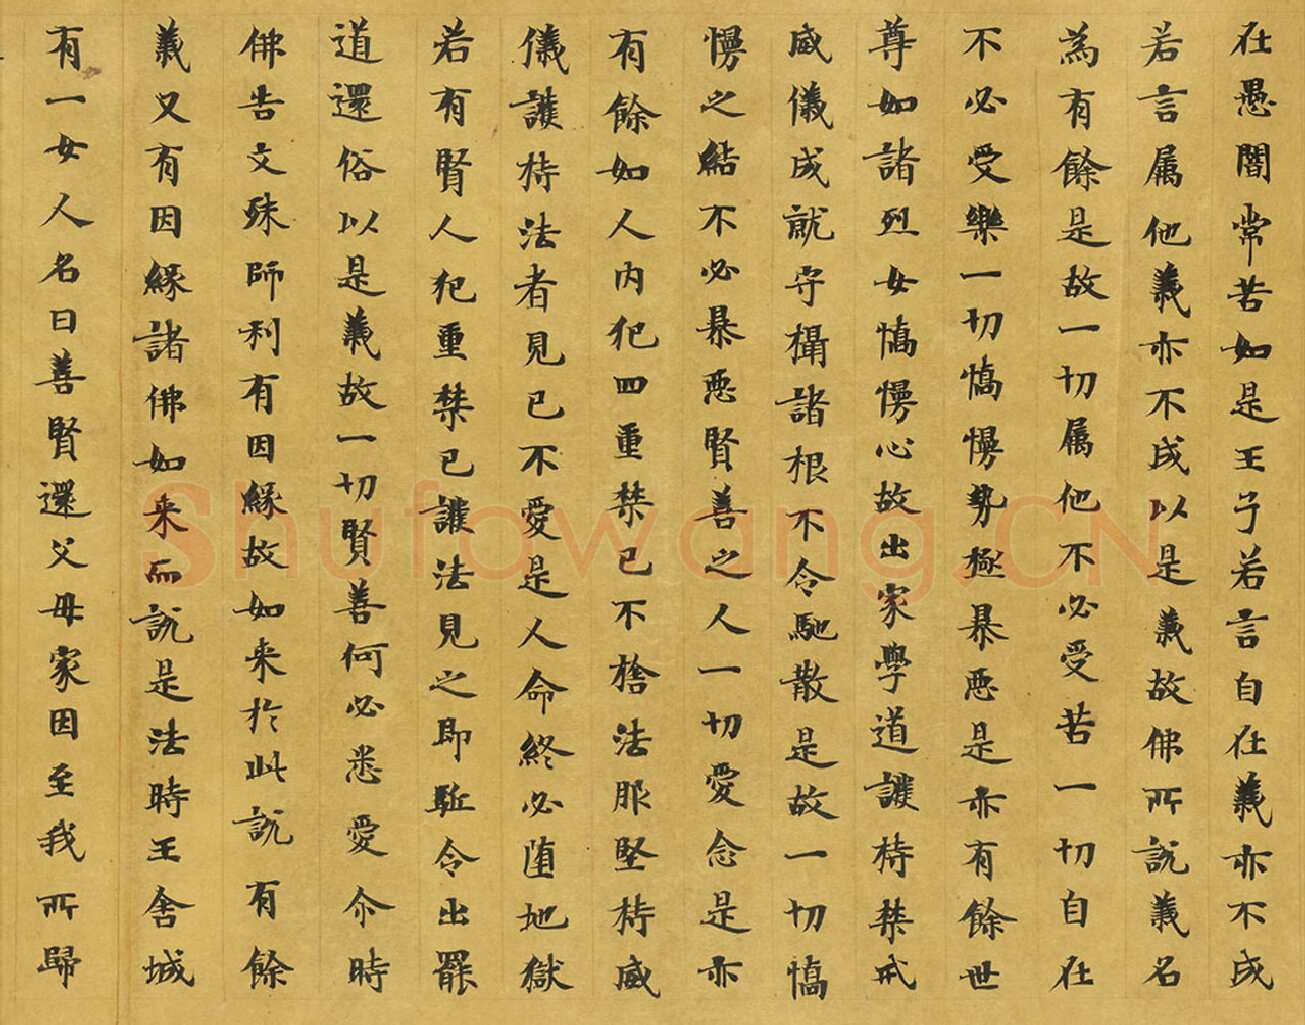 在愚闇常苦如是王子若言自在義亦不成
若言属他義亦不成以是義故佛所說義名
為有餘是故一切属他不必受苦一切自在
不必受樂一切憍慢勢極暴惡是亦有餘世
尊如諸烈女憍慢心故出家學道護持禁戒
威儀成就守攝諸根不令馳散是故一切憍
慢之結不必暴惡賢善之人一切愛念是亦
有餘如人內犯四重禁已不捨法服堅持威
儀護持法者見已不愛是人命終必堕地獄
若有賢人犯重禁已護法見之即駈令出罷
道還俗以是義故一切賢善何必悉愛尒時
佛告文殊師利有因緣故如来於此說有餘
義又有因緣諸佛如来而說是法時王舍城
有一女人名曰善賢還父母家因至我所歸
Shufawang.CN